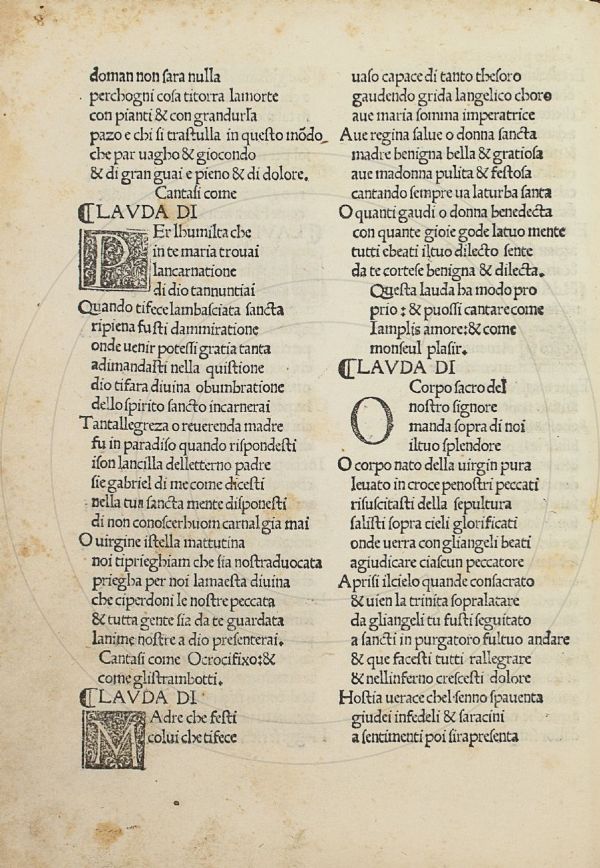 doman non sara nulla
perchogni cosa titorra lamorte
con pianti & con grandursa
pazo e chi si trastulla in questo mõdo
che par uagho & giocondo
& di gran guai e pieno & di dolore.
Cantasi come
⸿LAVDA DI
PEr lhumilta che
in te maria trouai
lancarnatione
di dio tannuntiai
Quando tifece lambasciata sancta
ripiena fusti dammiratione
onde uenir potessi gratia tanta
adimandasti nella quistione
dio tifara diuina obumbratione
dello spirito sancto incarnerai
Tantallegreza o reuerenda madre
fu in paradiso quando rispondesti
ison lancilla delletterno padre
sie gabriel di me come dicesti
nella tua sancta mente disponesti
di non conoscer huom carnal gia mai
O uirgine istella mattutina
noi tiprieghiam che sia nostraduocata
priegha per noi lamaesta diuina
che ciperdoni le nostre peccata
& tutta gente sia da te guardata
lanime nostre a dio presenterai.
Cantasi come Ocrocifixo:&
come glistrambotti.
⸿LAVDA DI
MAdre che festi
colui che tifece
uaso capace di tanto thesoro
gaudendo grida langelico choro
aue maria somma imperatrice
Aue regina salue o donna sancta
madre benigna bella & gratiosa
aue madonna pulita & festosa
cantando sempre ua laturba santa
O quanti gaudi o donna benedecta
con quante gioie gode latuo mente
tutti ebeati iltuo dilecto sente
da te cortese benigna & dilecta.
Questa lauda ha modo pro
prio: & puossi cantare come
Iamplis amore:& come
monseul plasir.
⸿LAVDA DI
O Corpo sacro del
nostro signore
manda sopra di noi
iltuo splendore
O corpo nato della uirgin pura
leuato in croce penostri peccati
risuscitasti della sepultura
salisti sopra cieli glorificati
onde uerra con gliangeli beati
agiudicare ciascun peccatore
Aprisi ilcielo quande consacrato
& uien la trinita sopralatare
da gliangeli tu fusti seguitato
a sancti in purgatoro fultuo andare
& que facesti tutti rallegrare
& nellinferno crescesti dolore
Hostia uerace chel senno spauenta
giudei infedeli & saracini
a sentimenti poi sirapresenta